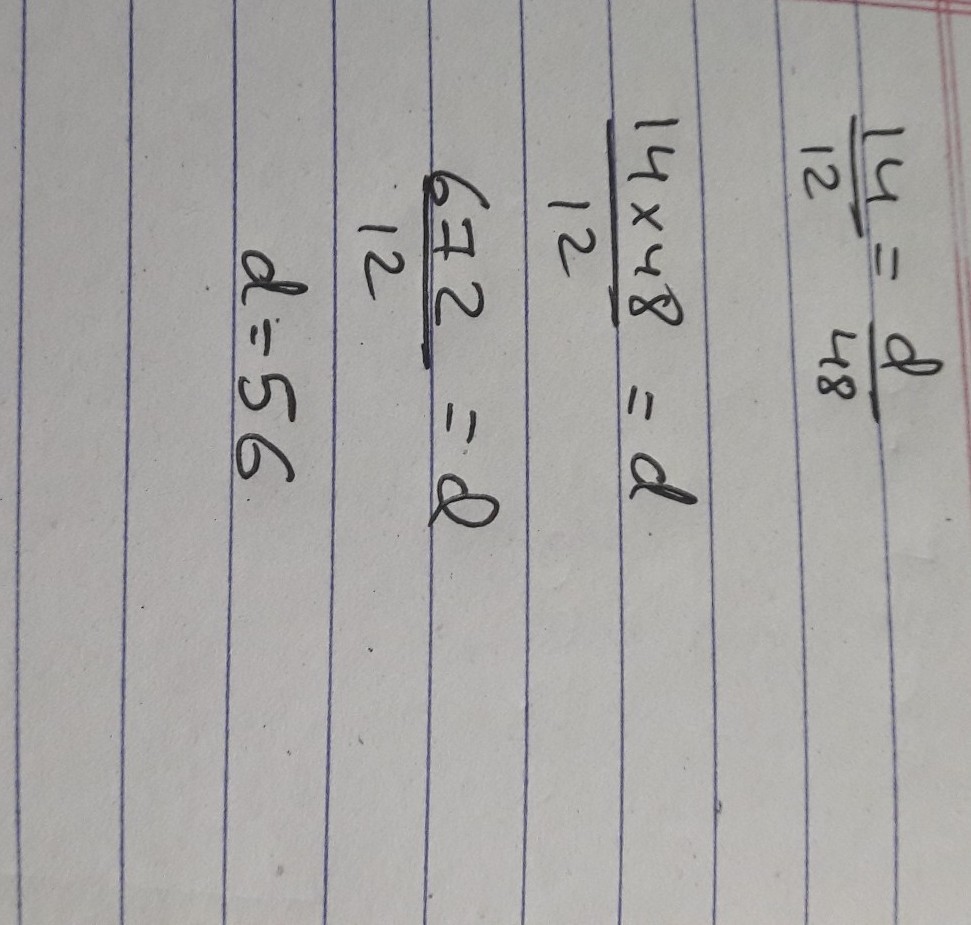 14/12 = d/48
14×48/12 = d
672/12 = d
d = 56